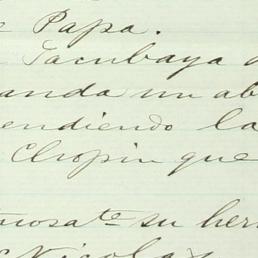 e Papa.
Tacubaya
anda un ab
endiendo la
Chopin que
uosa te su her
Nicolas